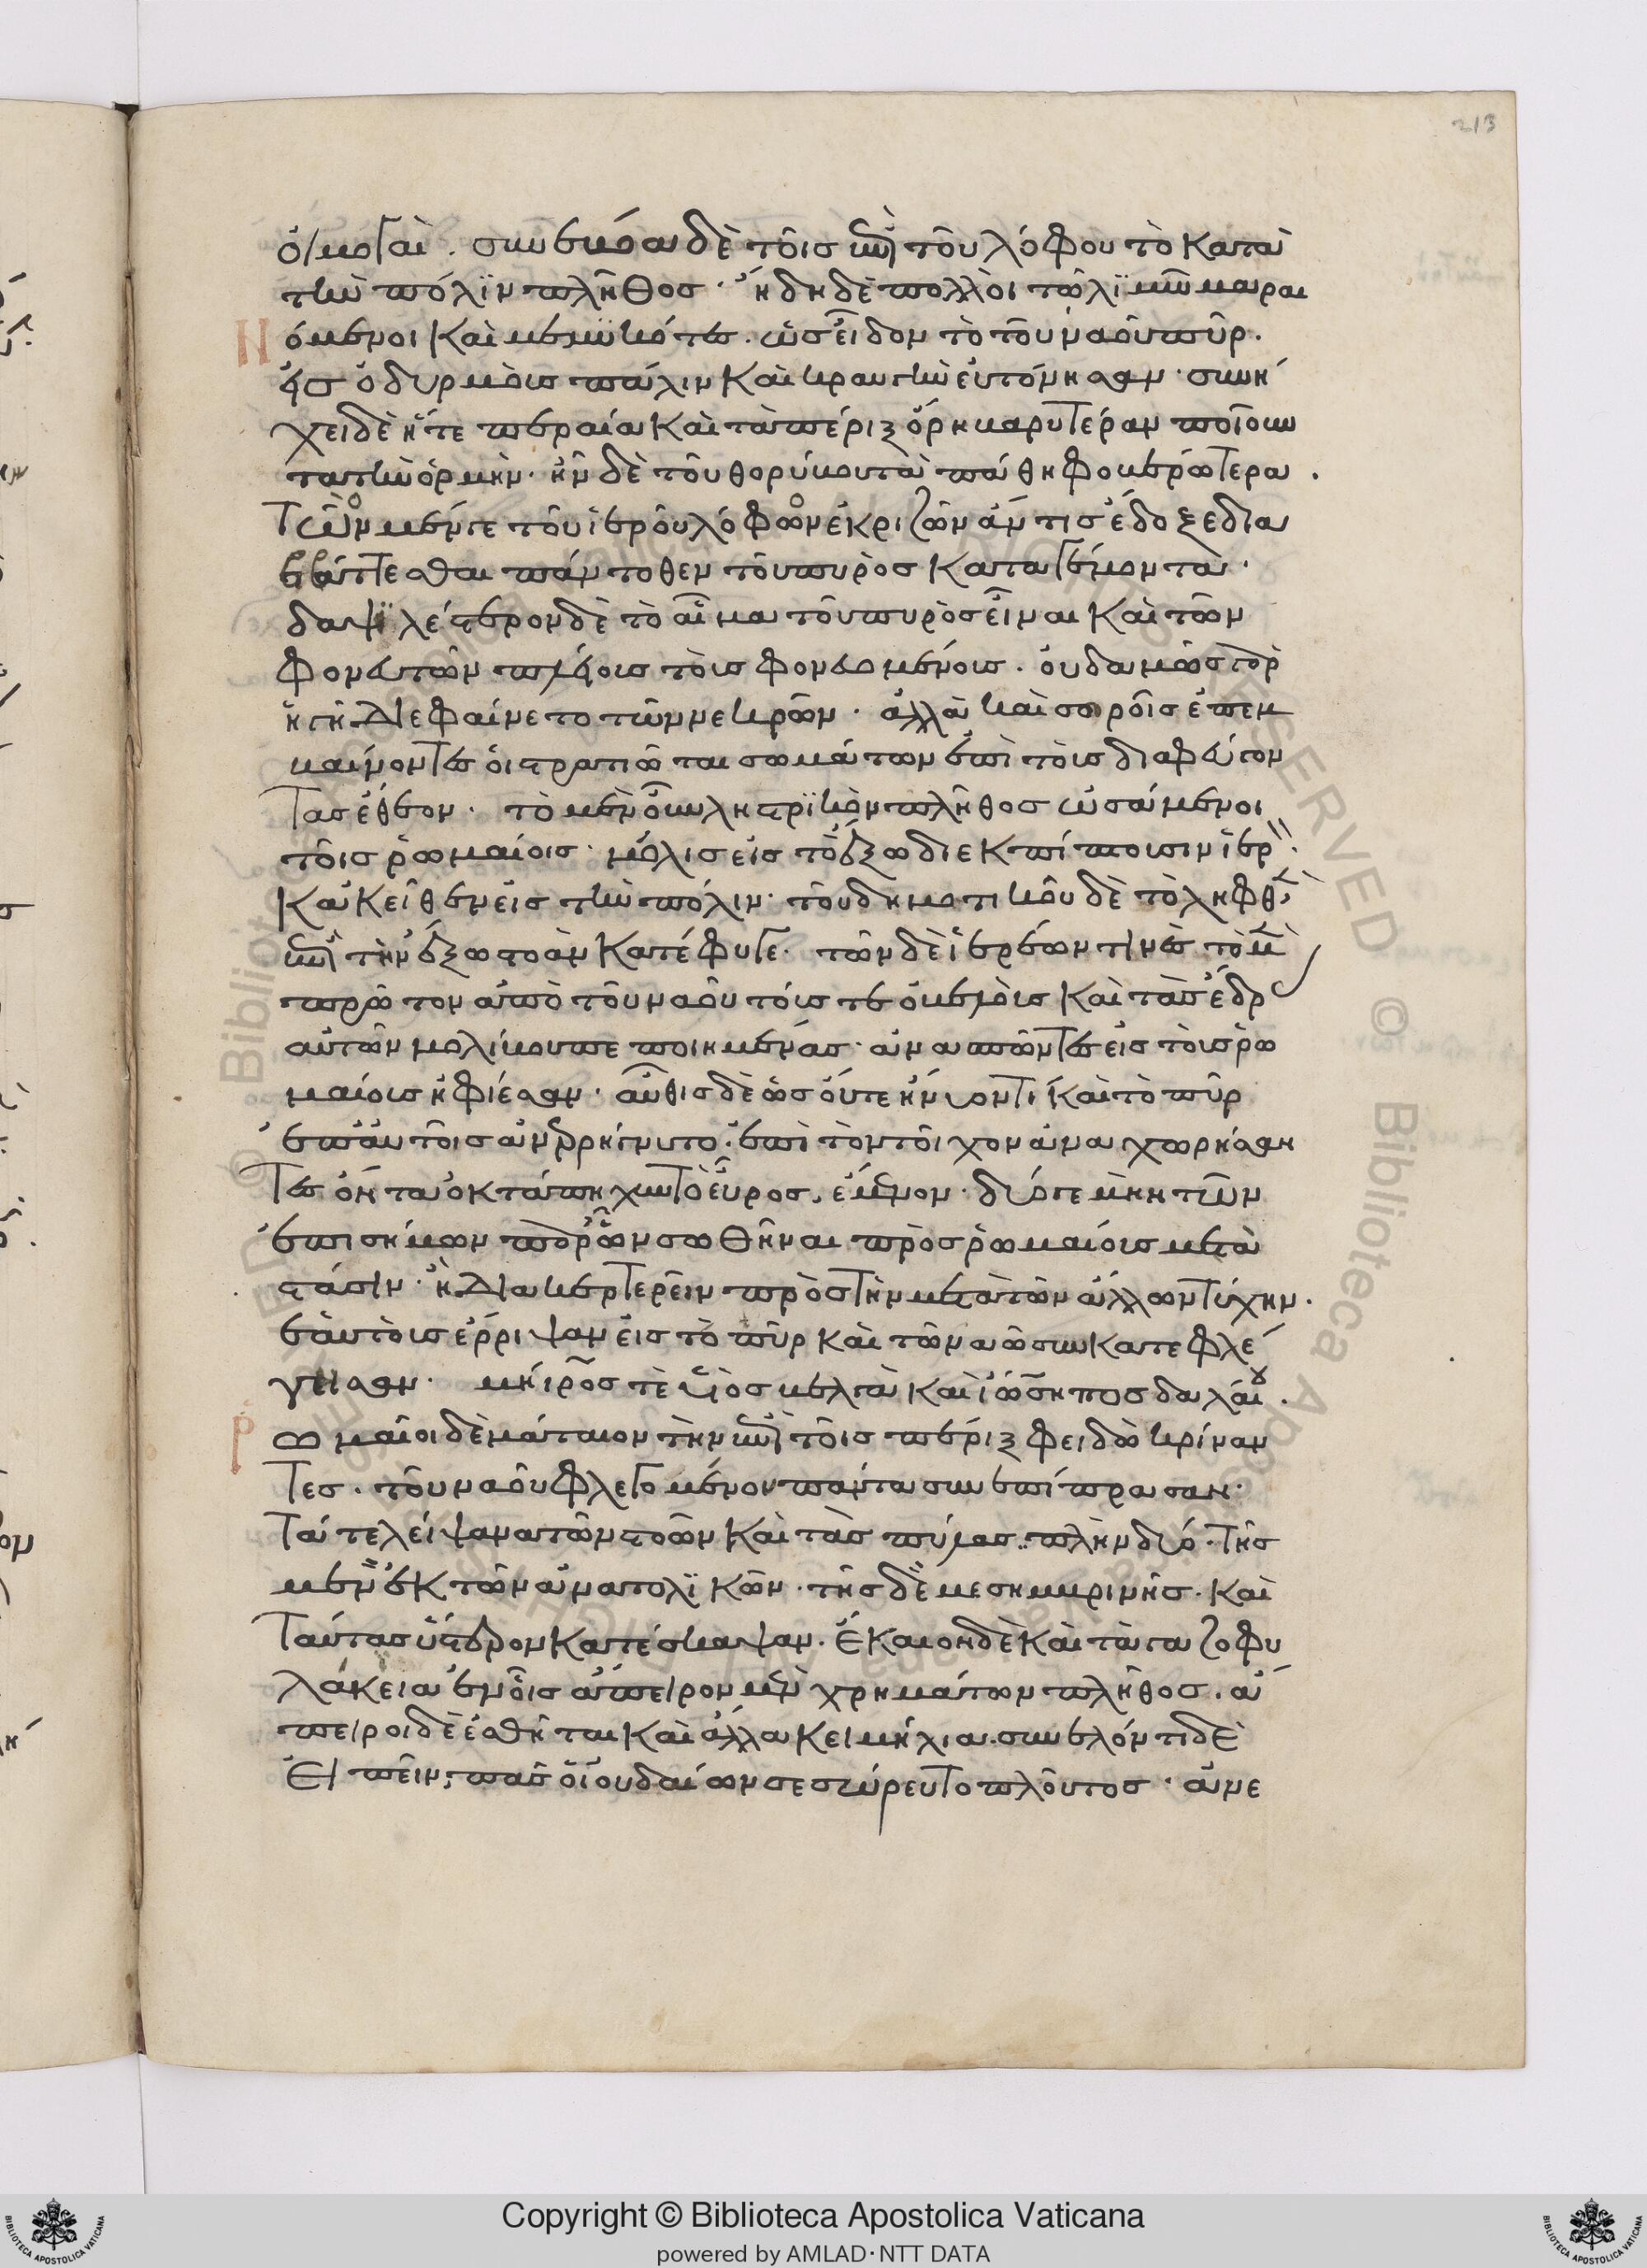 οιμωγαί. συνεβόα δὲ τοῖσ ἐπὶ τοῦ λόφου τὸ κατὰ
τὴν πόλϊν πλῆθοσ· ἤδη δὲ πολλοὶ τῶ λϊμῶ μαραι
νόμενοι καὶ μεμϋκότεσ. ὡσ εἶδον τὸ τοῦ ναοῦ πῦρ.
εἰσ ὀδυρμοὺσ πάλιν καὶ κραυγὴν εὐτόνησαν· συνή
χει δὲ ἥτε περαία καὶ τὰ πέριξ ὄρη βαρυτέραν ποιοῦν
τα τὴν ὁρμὴν· ἦν δὲ τοῦ θορύβου τὰ πάθη φοβερώτερα.
τὸν μέν γε τοῦ ἱεροῦ λόφον ἐκ ριζῶν ἄν τισ ἔδοξε δια
βράττεσθαι πάντοθεν τοῦ πυρὸσ καταγέμοντα·
δαψϊλέστερον δὲ τὸ αἷμα τοῦ πυρὸσ εἶναι καὶ τῶν
φονευτῶν πλείουσ τοὺσ φονευομένουσ. οὐδαμῶσ γὰρ
ἡ γῆ διεφαίνετο τῶν νεκρῶν. ἀλλὰ καὶ σωροῖσ ἐπεμ
βαίνοντεσ οἱ στρατιῶται σωμάτων ἐπὶ τοὺσ διαφεύγον
τασ ἔθεον. τὸ μὲν οὖν ληστρϊκὸν πλῆθοσ ὠσάμενοι
τοῖσ ῥωμαίοισ· μόλισ εἰσ τὸ ἔξω διεκπίπτουσιν ἱερὸν·
κἀκεῖθεν εἰσ τὴν πόλιν· τοῦ δημοτικοῦ δὲ τὸ ληφθὲν
ἐπὶ τὴν ἔξω στοὰν κατέφυγε· τῶν δὲ ἱερέων τινὲσ τὸ μὲν
πρῶτον ἀπὸ τοῦ ναοῦ τούσ τε ὀβελοὺσ καὶ τὰσ ἕδρασ
αὐτῶν μολίβου πεποιημένασ· ἀνασπῶντεσ εἰσ τοὺσ ῥω
μαίουσ ἠφίεσαν· αὖθισ δὲ ὡσ οὔτε ἤνυον τί καὶ τὸ πῦρ
ἐπ' αὐτοῖσ ἀνερρήγνυτο· ἐπὶ τὸν τοῖχον ἀναχωρήσαν
τεσ ὄντα ὀκτάπηχυν τὸ εὖροσ, ἔμενον· δύο γε μὴν τῶν
ἐπισήμων παρὸν σωθῆναι πρὸσ ῥωμαίουσ μετα
στάσιν. ἢ διακερτερεῖν πρὸσ τὴν μετὰ τῶν ἄλλων τύχην.
ἑαυτοὺσ ἔρριψαν εἰσ τὸ πῦρ καὶ τῶ ναῶ συγκατεφλέ
γησαν. μηϊρόσ τε υἱὸσ βελγᾶ καὶ ἰώσηποσ δαλαίου.
ῥωμαῖοι δὲ μάταιον τὴν ἐπὶ τοῖσ πέριξ φειδὼ κρίναν
τεσ. τοῦ ναοῦ φλεγομένου πάντα συνεπίπρασαν·
τά τε λείψανα τῶν στοῶν καὶ τὰσ πύλασ. πλὴν δύο. τῆσ
μὲν ἐκ τῶν ἀνατολϊκῶν· τῆσ δὲ μεσημβρινῆσ. καὶ
ταύτασ ὕστερον κατέσκαψαν. ἔκαιον δὲ καὶ τὰ γαζοφυ
λάκεια ἐν οἷσ ἄπειρον μὲν χρημάτων πλῆθοσ. ἄ
πειροι δὲ ἐσθῆται καὶ ἄλλα κειμήλια. συνελόντι δὲ
εἰπεῖν, πᾶσ ὁ ἰουδαίων σεσώρευτο πλοῦτοσ· ἀνε